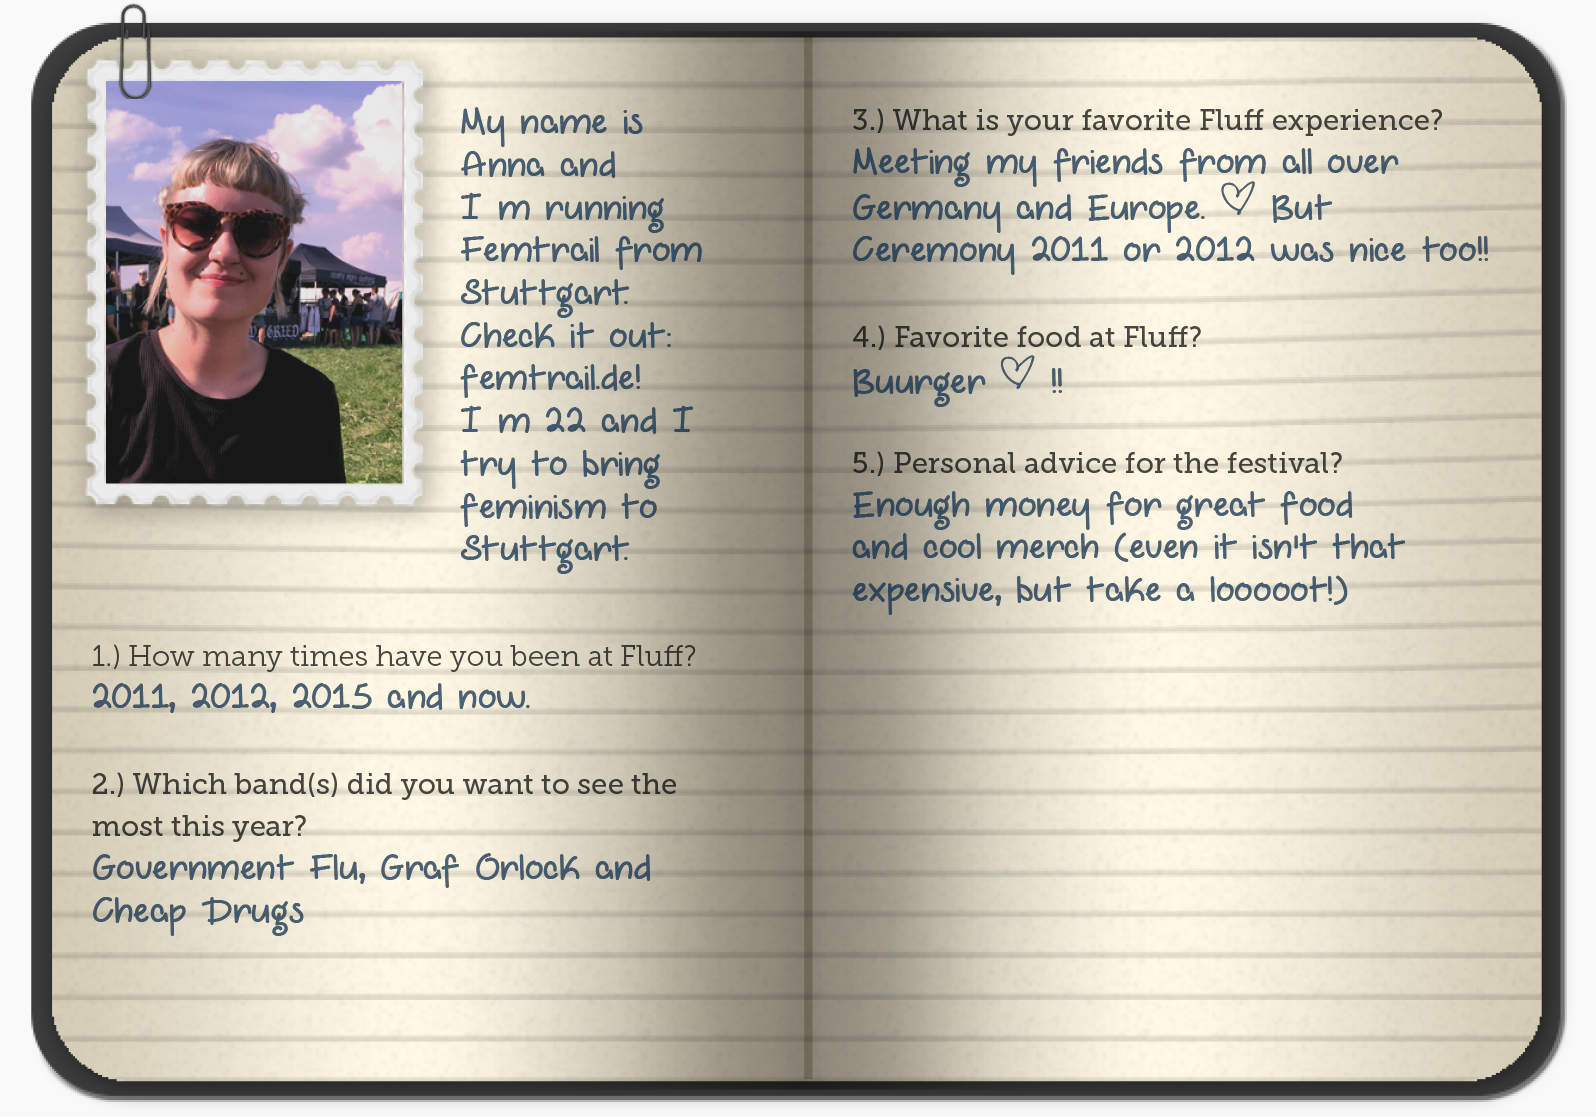 My name is
Anna and
I m running
Femtrail from
Stuttgart.
Check it out:
femtrail.de!
I m 22 and I
try to bring
feminism to
Stuttgart.
1.) How many times have you been at Fluff?
2011, 2012, 2015 and now.
2.) Which band(s) did you want to see the
most this year?
Government Flu, Graf Orlock and
Cheap Drugs
3.) What is your favorite Fluff experience?
Meeting my friends from all over
Germany and Europe. ♡ But
Ceremony 2011 or 2012 was nice too!!
4.) Favorite food at Fluff?
Buurger ♡ !!
5.) Personal advice for the festival?
Enough money for great food
and cool merch (even it isn't that
expensive, but take a looooot!)